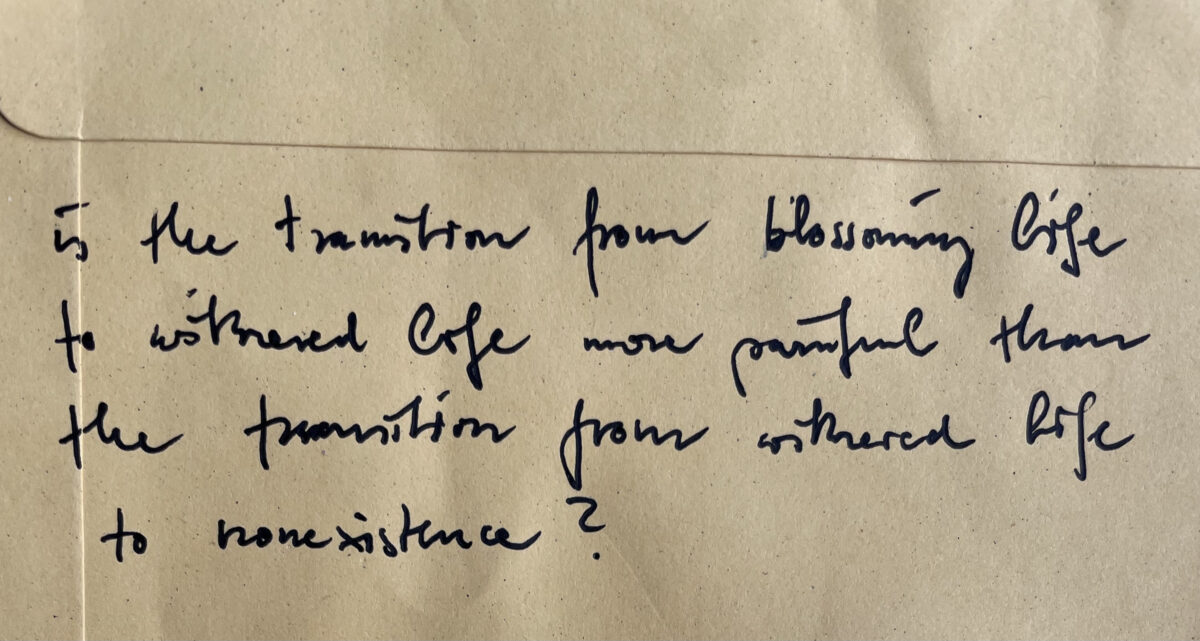 is the transition from blossoming life
to withered life more painful than
the transition from withered life
to nonexistence?